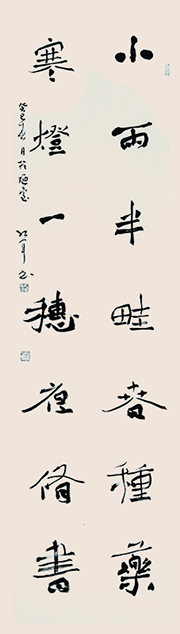 小雨半畦春種藥
寒燈一穗夜脩書